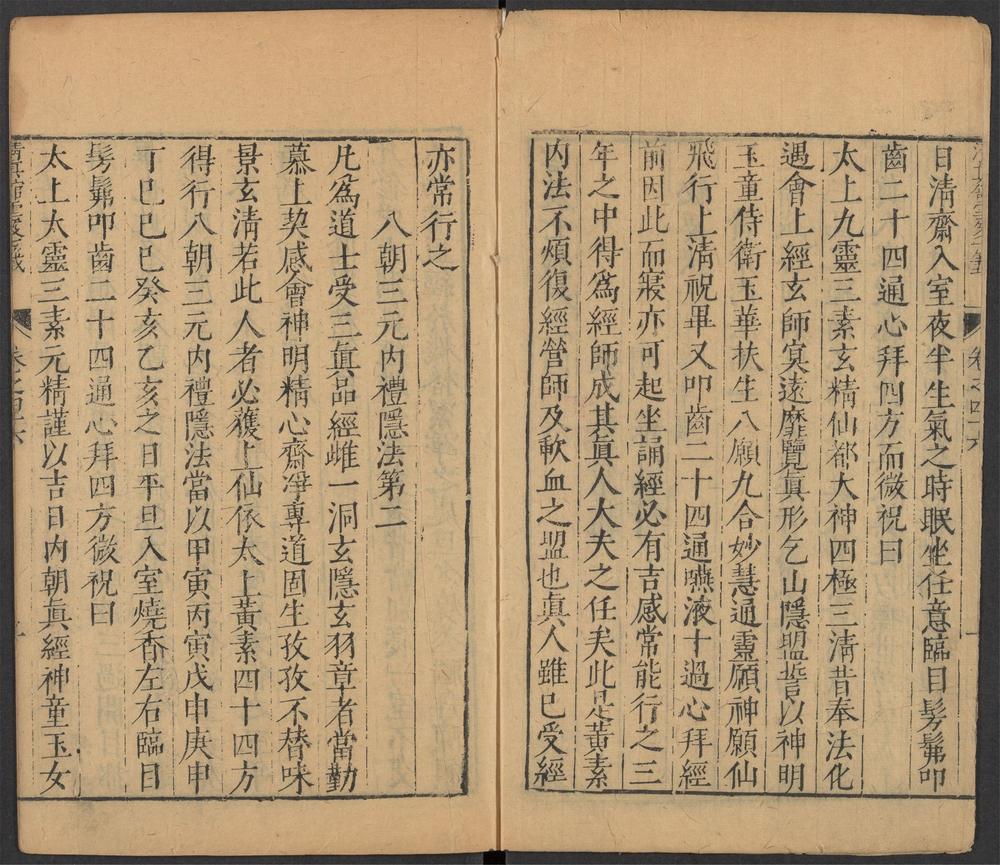 日淸齋入室夜半生氣之時眠坐任意臨目髣髴叩
齒二十四通心拜四方而微祝曰
太上九靈三素玄精仙都大神四極三淸昔奉法化
遇會上經玄師㝠遠靡覽眞形乞丐隱盟誓以神明
玉童侍衛玉華扶生八願九合妙慧通靈願神願仙
飛行上淸祝畢又叩齒二十四通嚥液十過心拜經
前因此而寢亦可起坐誦經必有吉感常能行之三
年之中得爲經師成其眞人大夫之任矣此是黃素
内法不煩復經營師及歃血之盟也眞人雖已受經
亦常行之
八朝三元内禮隱法第二
凡爲道士受三眞品經雌一洞玄隱玄羽章者當勤
慕上契感會神明精心齋淨專道固生孜孜不替味
景玄淸若此人者必獲上仙依太上黃素四十四方
得行八朝三元内禮隱法當以甲寅丙寅戊申庚申
丁巳己巳癸亥乙亥之日平旦入室燒香左右臨目
髣髴叩齒二十四通心拜四方微祝曰
太上太靈三素元精謹以吉日内朝眞經神童玉女
卷之四十六